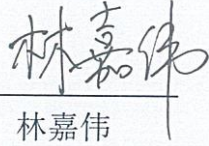 林嘉伟
林嘉伟